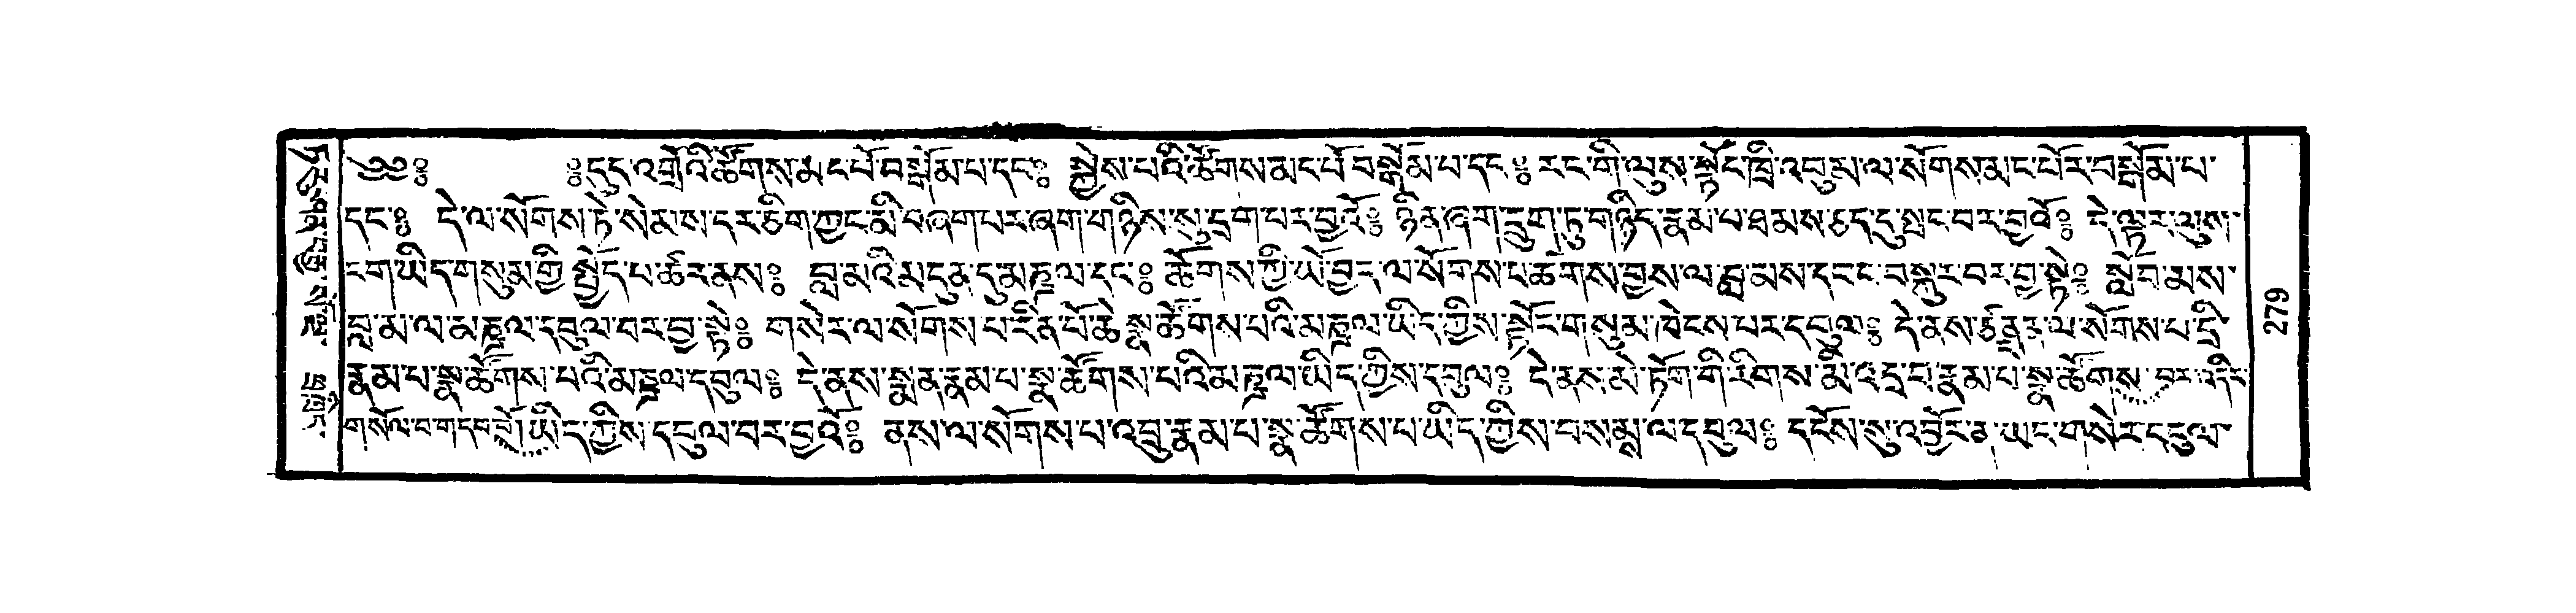 ༄༅༔ ༔དུད་འགྲོའི་ཚོགས་མང་པོ་བསྒོམ་པ་དང་༔ སྐྱེས་པའི་ཚོགས་མང་པོ་བསྒོམ་པ་དང་༔ རང་གི་ལུས་སྟོང་ཁྲི་འབུམ་ལ་སོགས་མང་པོར་བསྒོམ་པ་
དང་༔ དེ་ལ་སོགས་ཏེ་སེམས་དར་ཅིག་ཀྱང་མི་བཞག་པར་ཞག་གཉིས་སུ་དྲག་པར་བྱའོ༔ ཉིན་ཞག་དྲུག་ཏུ་གཉིད་རྣམ་པ་ཐམས་ཅད་དུ་སྤང་བར་བྱའོ༔ དེ་ལྟར་ལུས་
ངག་ཡིད་གསུམ་གྱི་སྤྱོད་པ་ཚར་ནས༔ བླ་མའི་མདུན་དུ་མཎྜལ་དང་༔ ཚོགས་ཀྱི་ཡོ་བྱད་ལ་སོགས་པ་ཚོགས་བྱས་ལ་བླ་མས་དབང་བསྐུར་བར་བྱ་སྟེ༔ སློབ་མས་
བླ་མ་ལ་མཎྜལ་དབུལ་བར་བྱ་སྟེ༔ གསེར་ལ་སོགས་པ་རིན་པོ་ཆེ་སྣ་ཚོགས་པའི་མཎྜལ་ཡིད་ཀྱིས་སྟོང་གསུམ་ཁེངས་པར་དབུལ༔ དེ་ནས་ཙནྡན་ལ་སོགས་པ་དྲི་
རྣམ་པ་སྣ་ཚོགས་པའི་མཎྜལ་དབུལ༔ དེ་ནས་སྨན་རྣམ་པ་སྣ་ཚོགས་པའི་མཎྜལ་ཡིད་ཀྱིས་དབུལ༔ དེ་ནས་མེ་ཏོག་གི་རིགས་མི་འདྲ་བ་རྣམ་པ་སྣ་ཚོགས་ བར་འདིར་
གསོལ་བ་གདབ་བོ། ཡིད་ཀྱིས་དབུལ་བར་བྱའོ༔ ནས་ལ་སོགས་པ་འབྲུ་རྣམ་པ་སྣ་ཚོགས་པ་ཡིད་ཀྱིས་བསམ་ལ་དབུལ༔ དངོས་སུ་འབྱོར་ན་ཡང་གསེར་དངུལ་